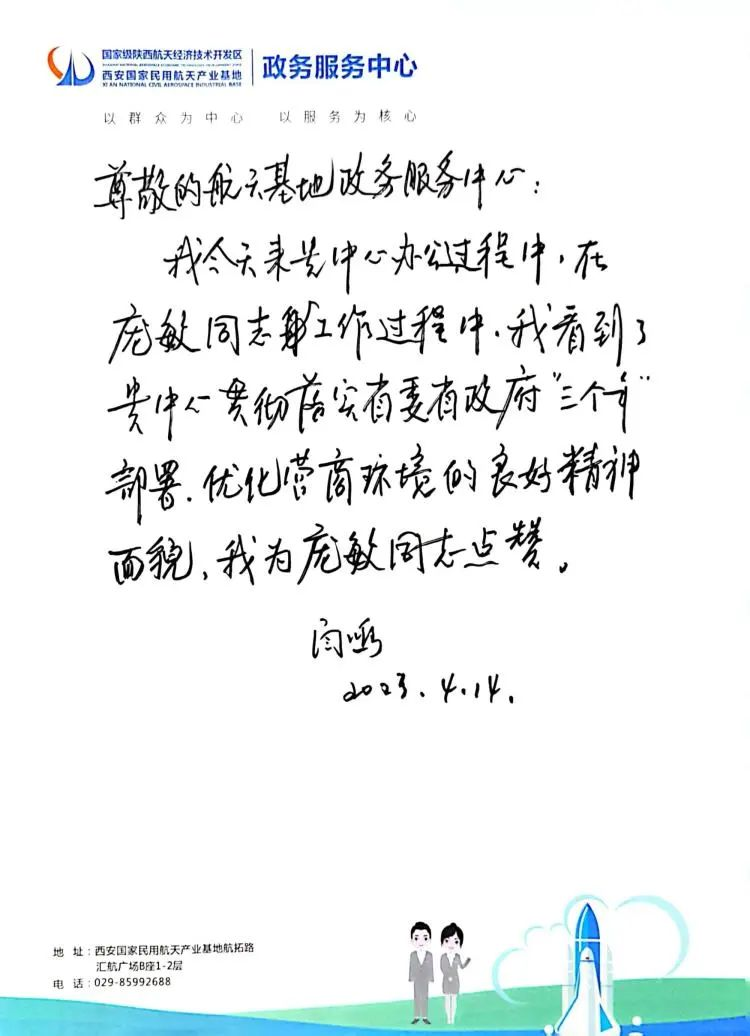 国家级陕西航天经济技术开发区
SHAANXI NATIONAL AEROSPACE ECONOMIC & TECHNOLOGICAL DEVELOPMENT ZONE
西安国家民用航天产业基地
XI AN NATIONAL CIVIL AEROSPACE INDUSTRIAL BASE
政务服务中心
以群众为中心 以服务为核心
尊敬的航天基地政务服务中心：
我今天来贵中心办公过程中，在
庞敏同志工作过程中，我看到了
贵中心贯彻落实省委省政府"三个年"
部署、优化营商环境的良好精神
面貌，我为庞敏同志点赞。
闫
2023.4.14.
地 址：西安国家民用航天产业基地航拓路
汇航广场B座1-2层
电 话：029-85992688